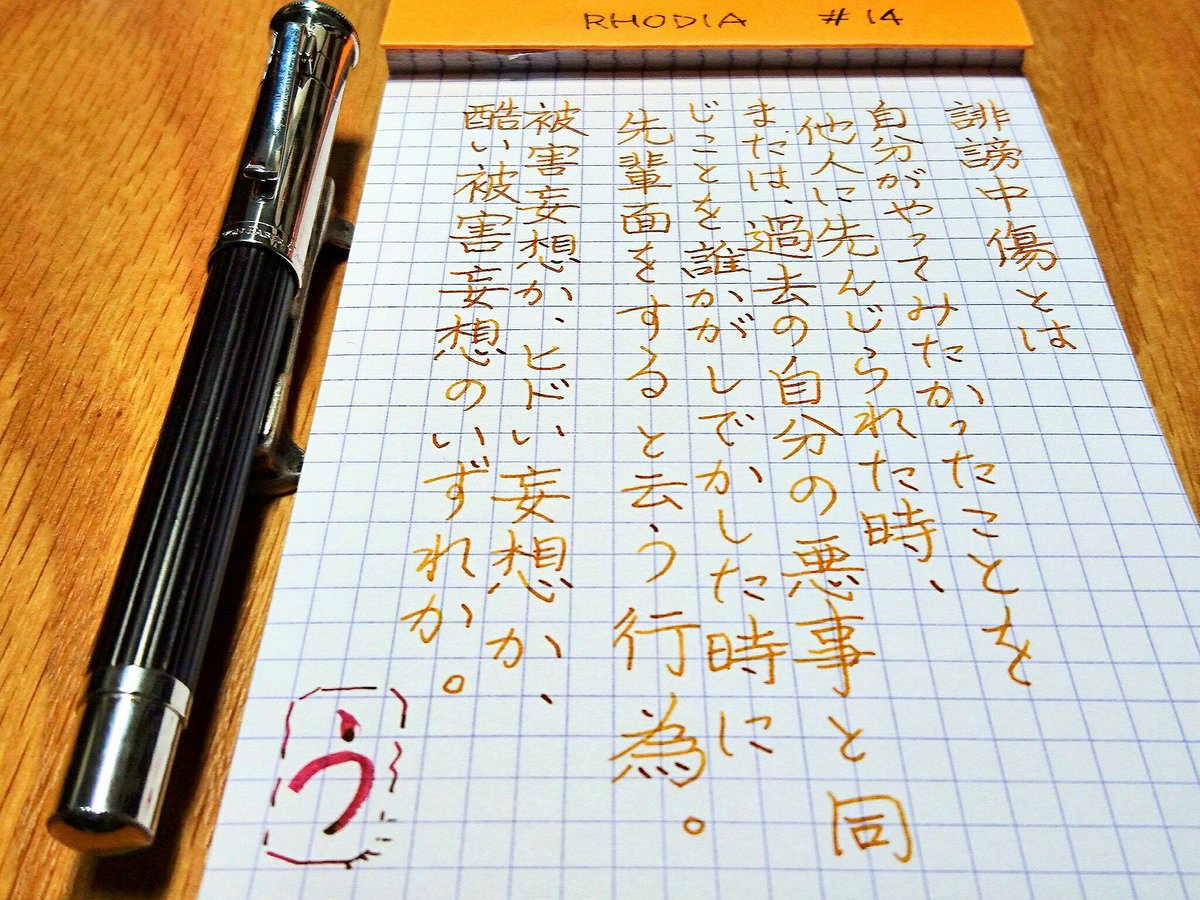 RHODIA #14
誹謗中傷とは
自分がやってみたかったことを
他人に先んじられた時、
まだは、過去の自分の悪事と同
じことを誰かがしでかした時に
先輩面をすると云う行為。
被害妄想か、ヒドい妄想か、
酷い被害妄想のいずれか。
う